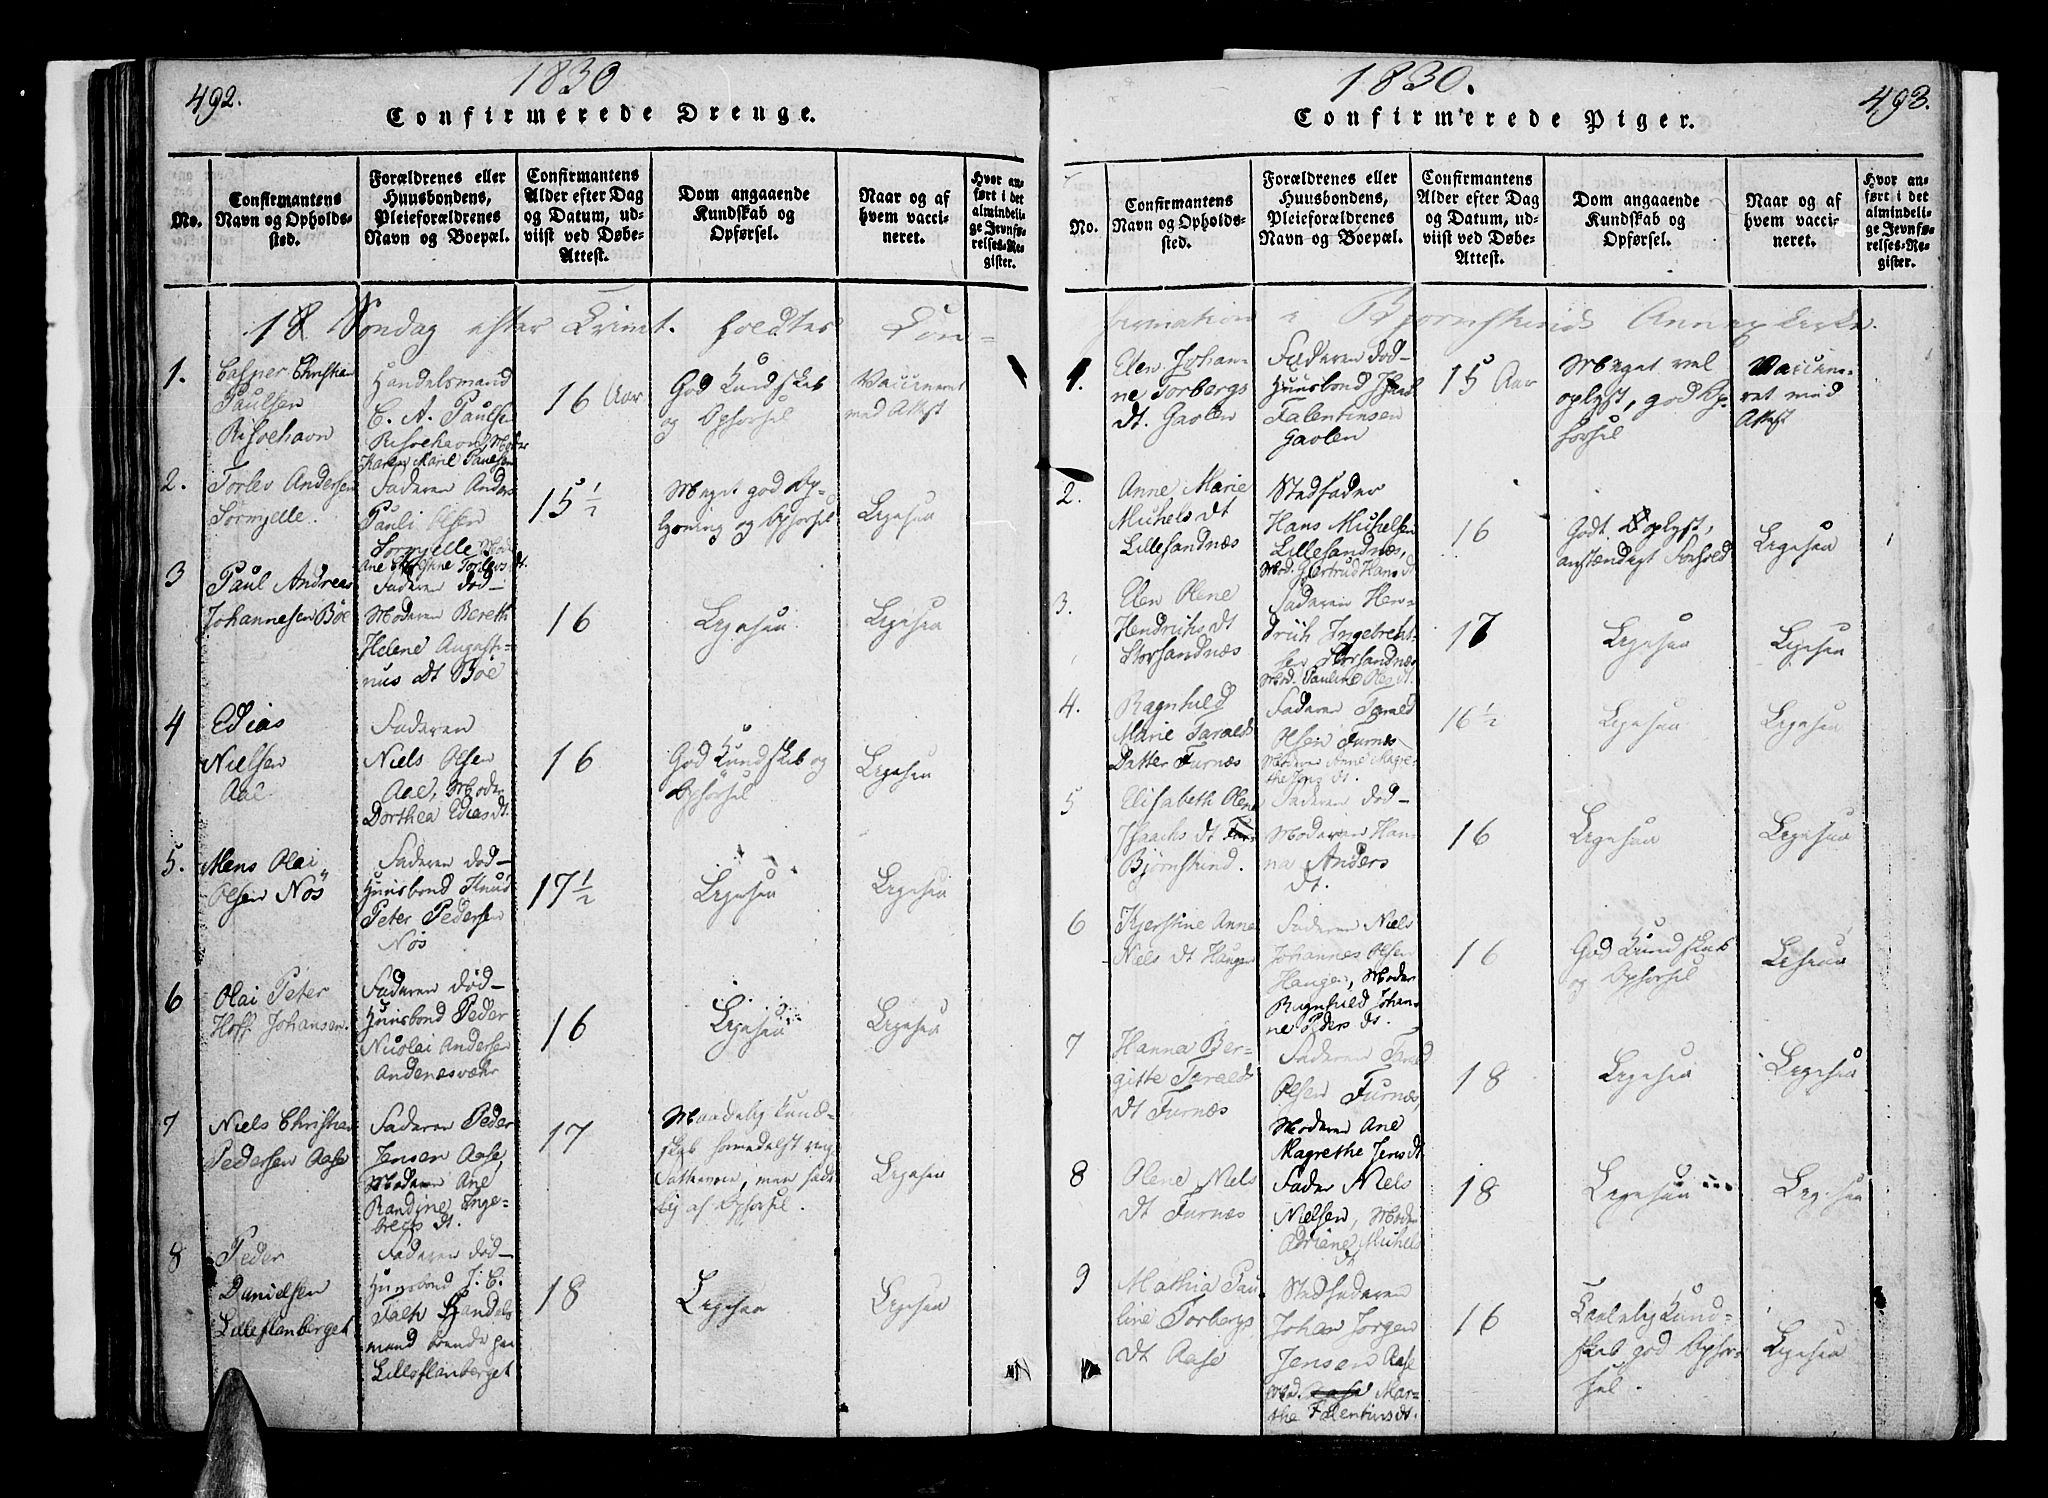 492.
1830
Confirmerede Drenge.
No.
Confirmantens
Navn og Opholds-
sted.
Forældrenes eller
Huusbondens,
Pleieforældrenes
Navn og Boepæl.
Confirmantens
Alder efter Dag
og Datum, ud-
viist ved Døbe-
Attest.
Dom angaaende
Kundskab og
Opførsel.
Naar og af
hvem vacci-
neret.
Hvor an-
ført i det
almindeli-
ge Jevnfø-
relses-Re-
gister.
18 Søndag efter Trinit. holdtes Con-
1.
Casper Christian
Paulsen
Risøehavn
Handelsmand
C. A. Paulsen
Risøehavn, Moder
Karen Marie Paulsen
16 Aar
God Kundskab
og Opførsel
Vaccineret
med Attest
2.
Torlev Andersen
Sørmjelle.
Faderen Anders
Pauli Olsen
Sørmjelle, Mod
Ane Torlevs dt.
15 1/2
Meget god Op-
lysning og Opførsel
Ligesaa
3
Paul Andreas
Johannesen Böe
Faderen død -
Moderen Bereth
Helene Augusti-
nus dt Böe
16
Ligesaa
Ligesaa
4
Edias
Nielsen
Aae
Faderen
Niels Olsen
Aae, Moder
Dorthea Edias dt.
16
God Kundskab og
Opførsel
Ligesaa
5.
Mens Olai
Olsen Nös
Faderen død -
Huusbond Knud
Peter Pedersen
Nös
17 1/2
Ligesaa
Ligesaa
6
Olai Peter
Hoff Johansen.
Faderen død -
Huusbond Peder
Nicolai Andersen
Andenæsvær
16
Ligesaa
Ligesaa
7
Niels Christian
Pedersen Aase
Faderen Peder
Jensen Aase
Moderen Ane
Randine Inge-
bregs dt.
17
Maadelig Kund-
skab formedelst
men
lig af Opførsel.
Ligesaa
8
Peder
Danielsen
Lilleflanberget
Faderen død -
Huusbond J. C.
Falch Handels
mand boende paa
Lilleflanberget
18
Ligesaa
Ligesaa
1830.
493.
Confirmerede Piger.
No.
Confirmantens
Navn og Opholds-
sted.
Forældrenes eller
Huusbondens,
Pleieforældrenes
Navn og Boepæl.
Confirmantens
Alder efter Dag
og Datum, ud-
viist ved Døbe-
Attest.
Dom angaaende
Kundskab og
Opførsel.
Naar og af
hvem vacci-
neret.
Hvor an-
ført i det
almindeli-
ge Jevnfø-
relses-Re-
gister.
firmation i Bjørnskinds Annexkirke.
1.
Elen Johan-
ne Torbergs
dt. Gavlen
Faderen død -
Huusbond
Falentinsen
Gavlen
15 Aar
Meget vel
oplyst, god Op-
førsel
Vaccine-
ret med
Attest
2.
Anne Marie
Michels dt
Lillesandnæs
Stedfader
Hans Michelsen
Lillesandnæs,
Mod. Gjertrud Hans dt
16
Godt oplyst,
anstændigt Forhold
Ligesaa
3.
Elen Olene
Hendrichs dt
Storsandnæs
Faderen Hen-
drich Ingebregt-
sen Storsandnæs
Mod. Pauline Oles dt.
17
Ligesaa
Ligesaa
4.
Ragnhild
Marie Taralds
Datter Furnæs
Faderen Tarald
Olsen Furnæs
Moderen Anne Magre-
the Jens dt.
16 1/2
Ligesaa
Ligesaa
5
Elisabeth Olene
Isachs dt
Bjørnskind.
Faderen død -
Moderen Han-
na Anders
dt.
16
Ligesaa
Ligesaa
6
Kjerstine Anne
Niels dt Haugen
Faderen Niels
Johannes Olsen
Haugen, Moder
Ragnhild Johan-
ne Peders dt.
16
God Kundskab
og Opførsel
Ligesaa
7
Hanna Ber-
gitte Taralds
dt Furnæs
Faderen Tarald
Olsen Furnæs,
Moderen Ane
Magrethe Jens dt
18
Ligesaa
Ligesaa
8
Olene Niels
dt Furnæs
Fader Niels
Nielsen, Moder
Adriane Michels
dt
18
Ligesaa
Ligesaa
9
Mathia Pau
line Torbergs
dt Aase
Stedfaderen
Johan Jørgen
Jensen Aase
Mod. Mar-
the Falentins dt.
16
Taalelig Kund-
skab god Opfør-
sel.
Ligesaa